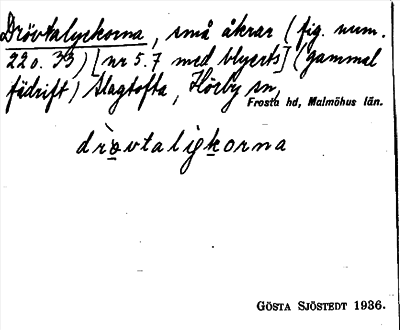 Drövtalyckorna, små åkrar (fig. num.
22 o. 33) [nr 5.7 med blyerts] (gammal
fädrift) Slagtofta, Hörby sn,
Frosta hd, Malmöhus län.
drò̱vtaligḵorna
GÖSTA SJÖSTEDT 1936.